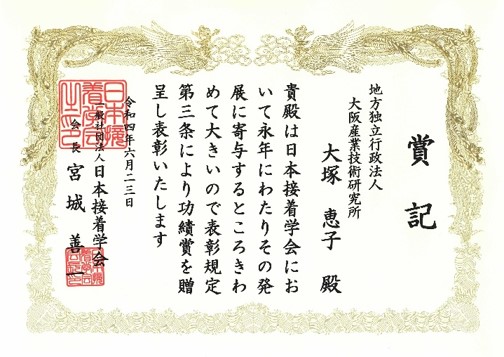 賞記
地方独立行政法人
大阪産業技術研究所
大塚恵子殿
貴殿は日本接着学会にお
いて永年にわたりその発
展に寄与するところきわ
めて大きいので表彰規定
第三条により功績賞を贈
呈し表彰いたします
令和四年六月二三日
一般社団法人日本接着学会
会長宮城善一